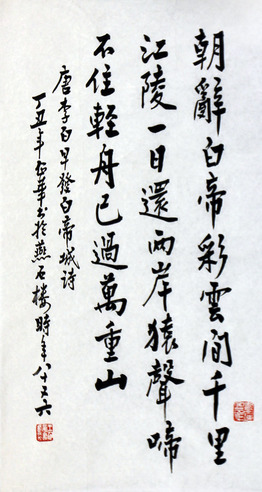 朝辭白帝彩雲間千里
江陵一日還兩岸猿聲啼
不住輕舟已過萬重山
唐李白早發白帝城詩
丁丑年 華書於燕石樓時年八十又六